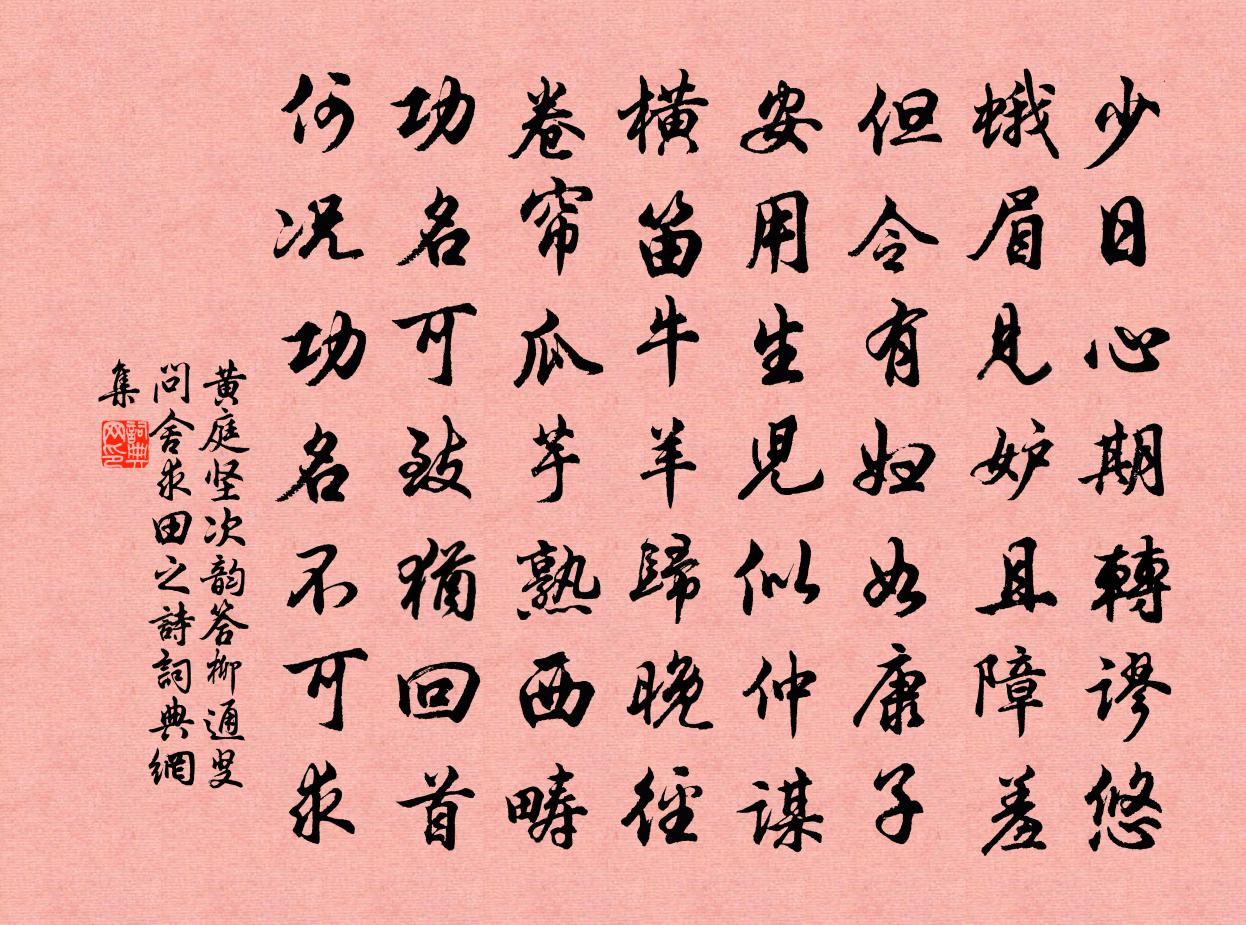 少日心期轉謬悠
蛾眉見妒且障羞
但令有婦如康子
安用生兒似仲謀
橫笛牛羊歸晚徑
卷帘瓜芋熟西疇
功名可致猶回首
何况功名不可求
黃庭坚次韵答柳通叟
問舍求田之詩詞典網
集
詞典网印